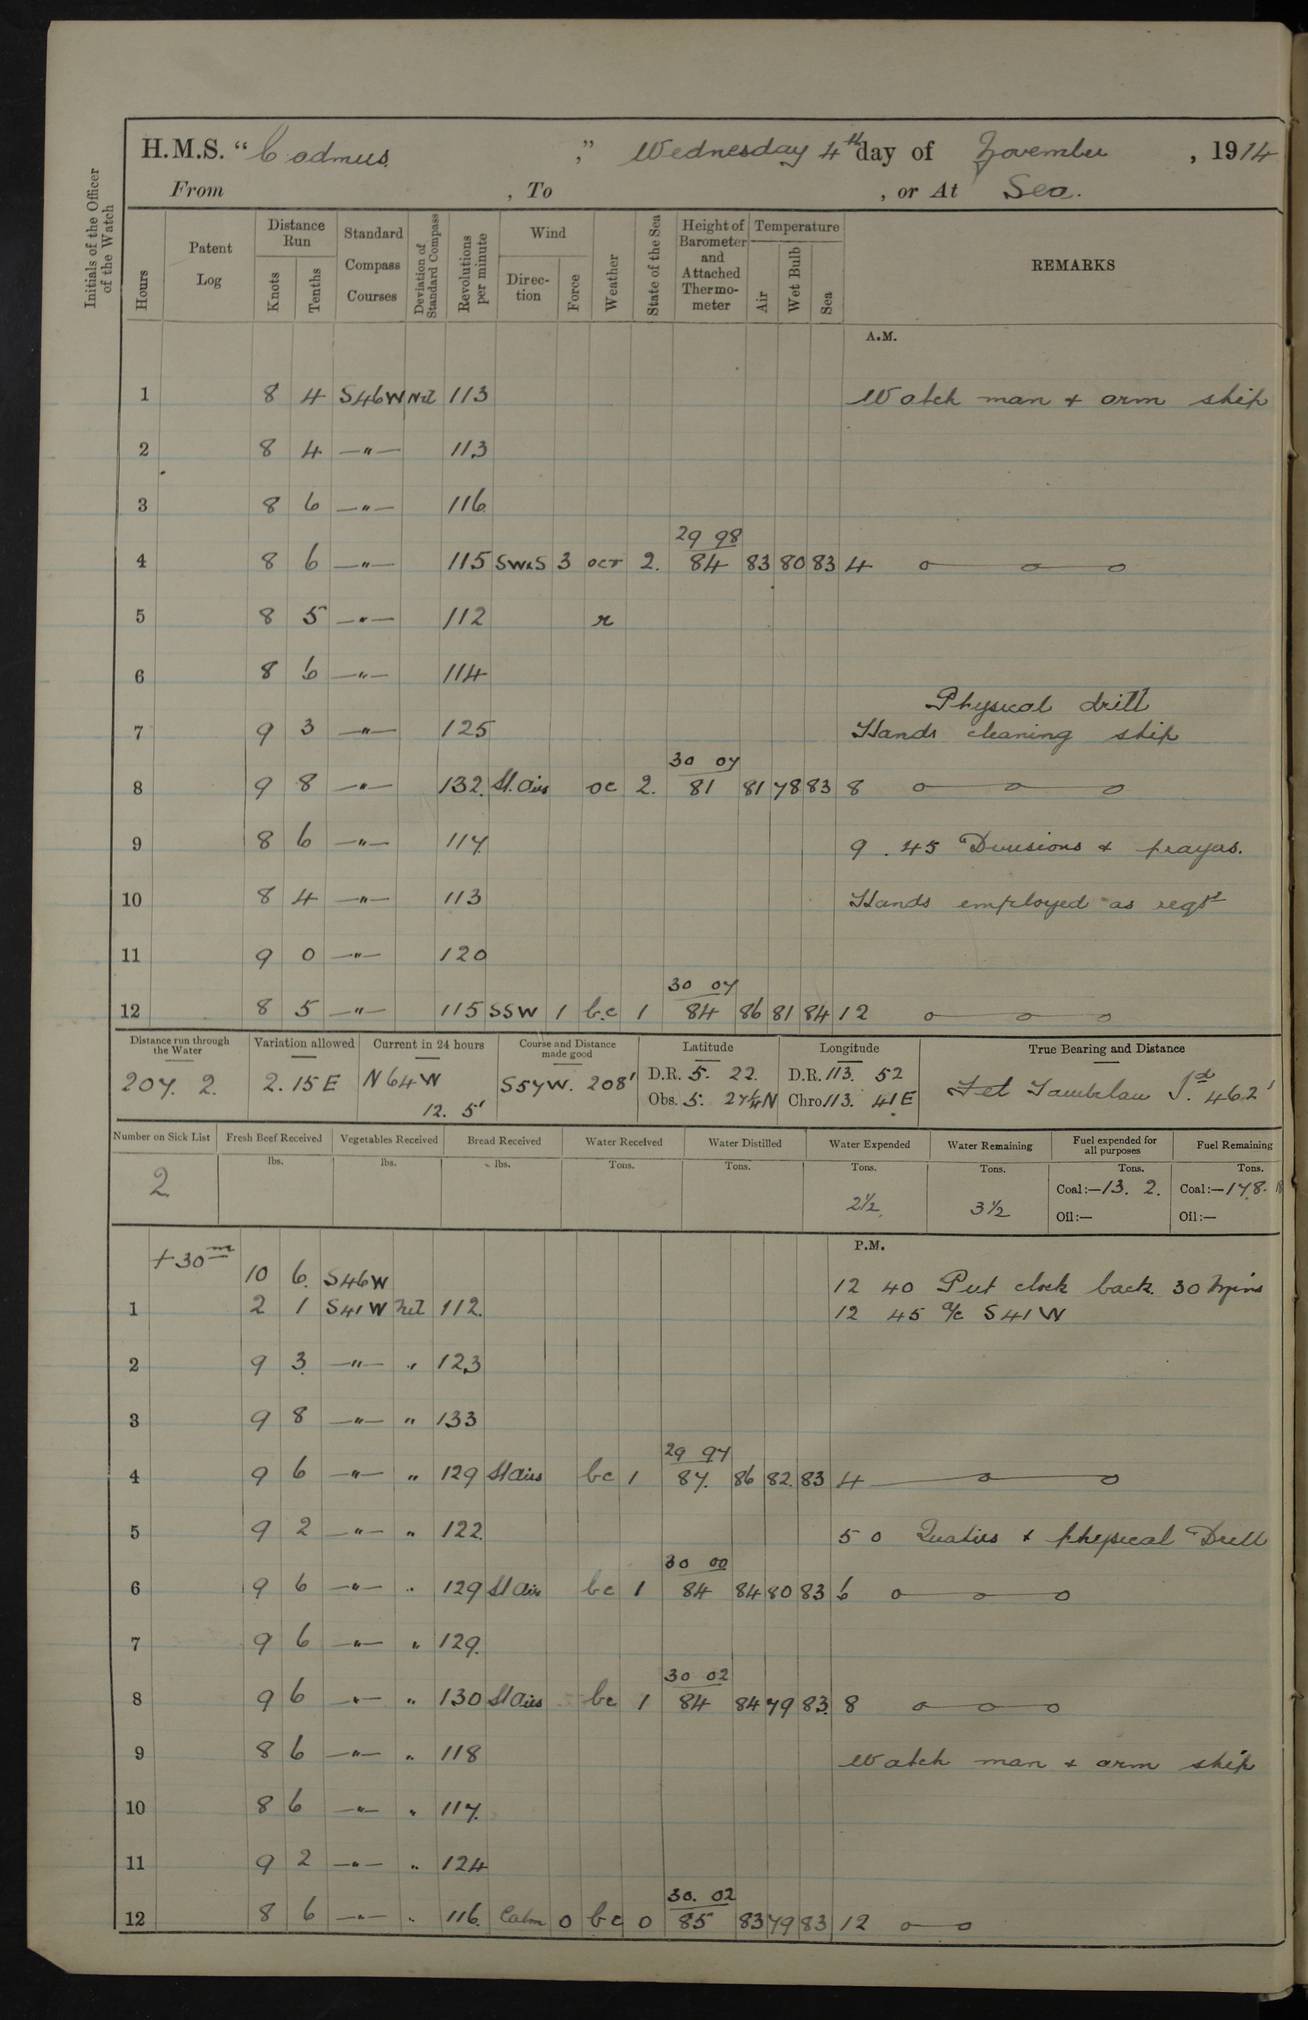 H.M.S. “Cadmus,” Wednesday 4th day of November, 1914
From , To , or At Sea.
Initials of the Officer of the Watch
Hours
Patent Log
Distance Run
Knots
Tenths
Standard Compass Courses
Deviation of Standard Compass
Revolutions per minute
Wind
Direction
Force
Weather
State of the Sea
Height of Barometer and Attached Thermometer
Temperature
Air
Wet Bulb
Sea
REMARKS
A.M.
1 8 4 S46W Nil 113 Watch man & arm ship
2 8 4 —"— 113
3 8 6 —"— 116
29 98
4 8 6 —"— 115 SWxS 3 ocr 2. 84 83 80 83 4
5 8 5 —"— 112 r
6 8 6 —"— 114
Physical drill
7 9 3 —"— 125 Hands cleaning ship
30 07
8 9 8 —"— 132. Lt. airs oc 2. 81 81 78 83 8
9 8 6 —"— 117 9.45 Divisions & prayers.
10 8 4 —"— 113 Hands employed as reqd
11 9 0 —"— 120
30 07
12 8 5 —"— 115 SSW 1 b.c 1 84 86 81 84 12
Distance run through the Water
Variation allowed
Current in 24 hours
Course and Distance made good
Latitude
Longitude
True Bearing and Distance
207. 2. 2. 15 E N 64 W 12. 5' S57W. 208' D.R. 5. 22. D.R. 113. 52
Obs. 5. 27¼N Chro 113. 41 E Tambelan Id. 462'
Number on Sick List
Fresh Beef Received
Vegetables Received
Bread Received
Water Received
Water Distilled
Water Expended
Water Remaining
Fuel expended for all purposes
Fuel Remaining
lbs. lbs. lbs. Tons. Tons. Tons. Tons. Tons. Tons.
2 2½ 3½ Coal:—13. 2. Coal:—178.
Oil:— Oil:—
P.M.
+30m 10 6. S46W 12 40 Put clock back 30 mins
1 2 1 S41W Nil 112. 12 45 a/c S41W
2 9 3 —"— " 123
3 9 8 —"— " 133
29 97
4 9 6 —"— " 129 Lt airs bc 1 87. 86 82. 83 4
5 9 2 —"— " 122. 5 0 Quarters & physical Drill
30 00
6 9 6 —"— " 129 Lt airs bc 1 84 84 80 83 6
7 9 6 —"— " 129.
30 02
8 9 6 —"— " 130 Lt airs bc 1 84 84 79 83. 8
9 8 6 —"— " 118 Watch man & arm ship
10 8 6 —"— " 117.
11 9 2 —"— " 124
30. 02
12 8 6 —"— " 116. Calm 0 bc 0 85 83 79 83 12